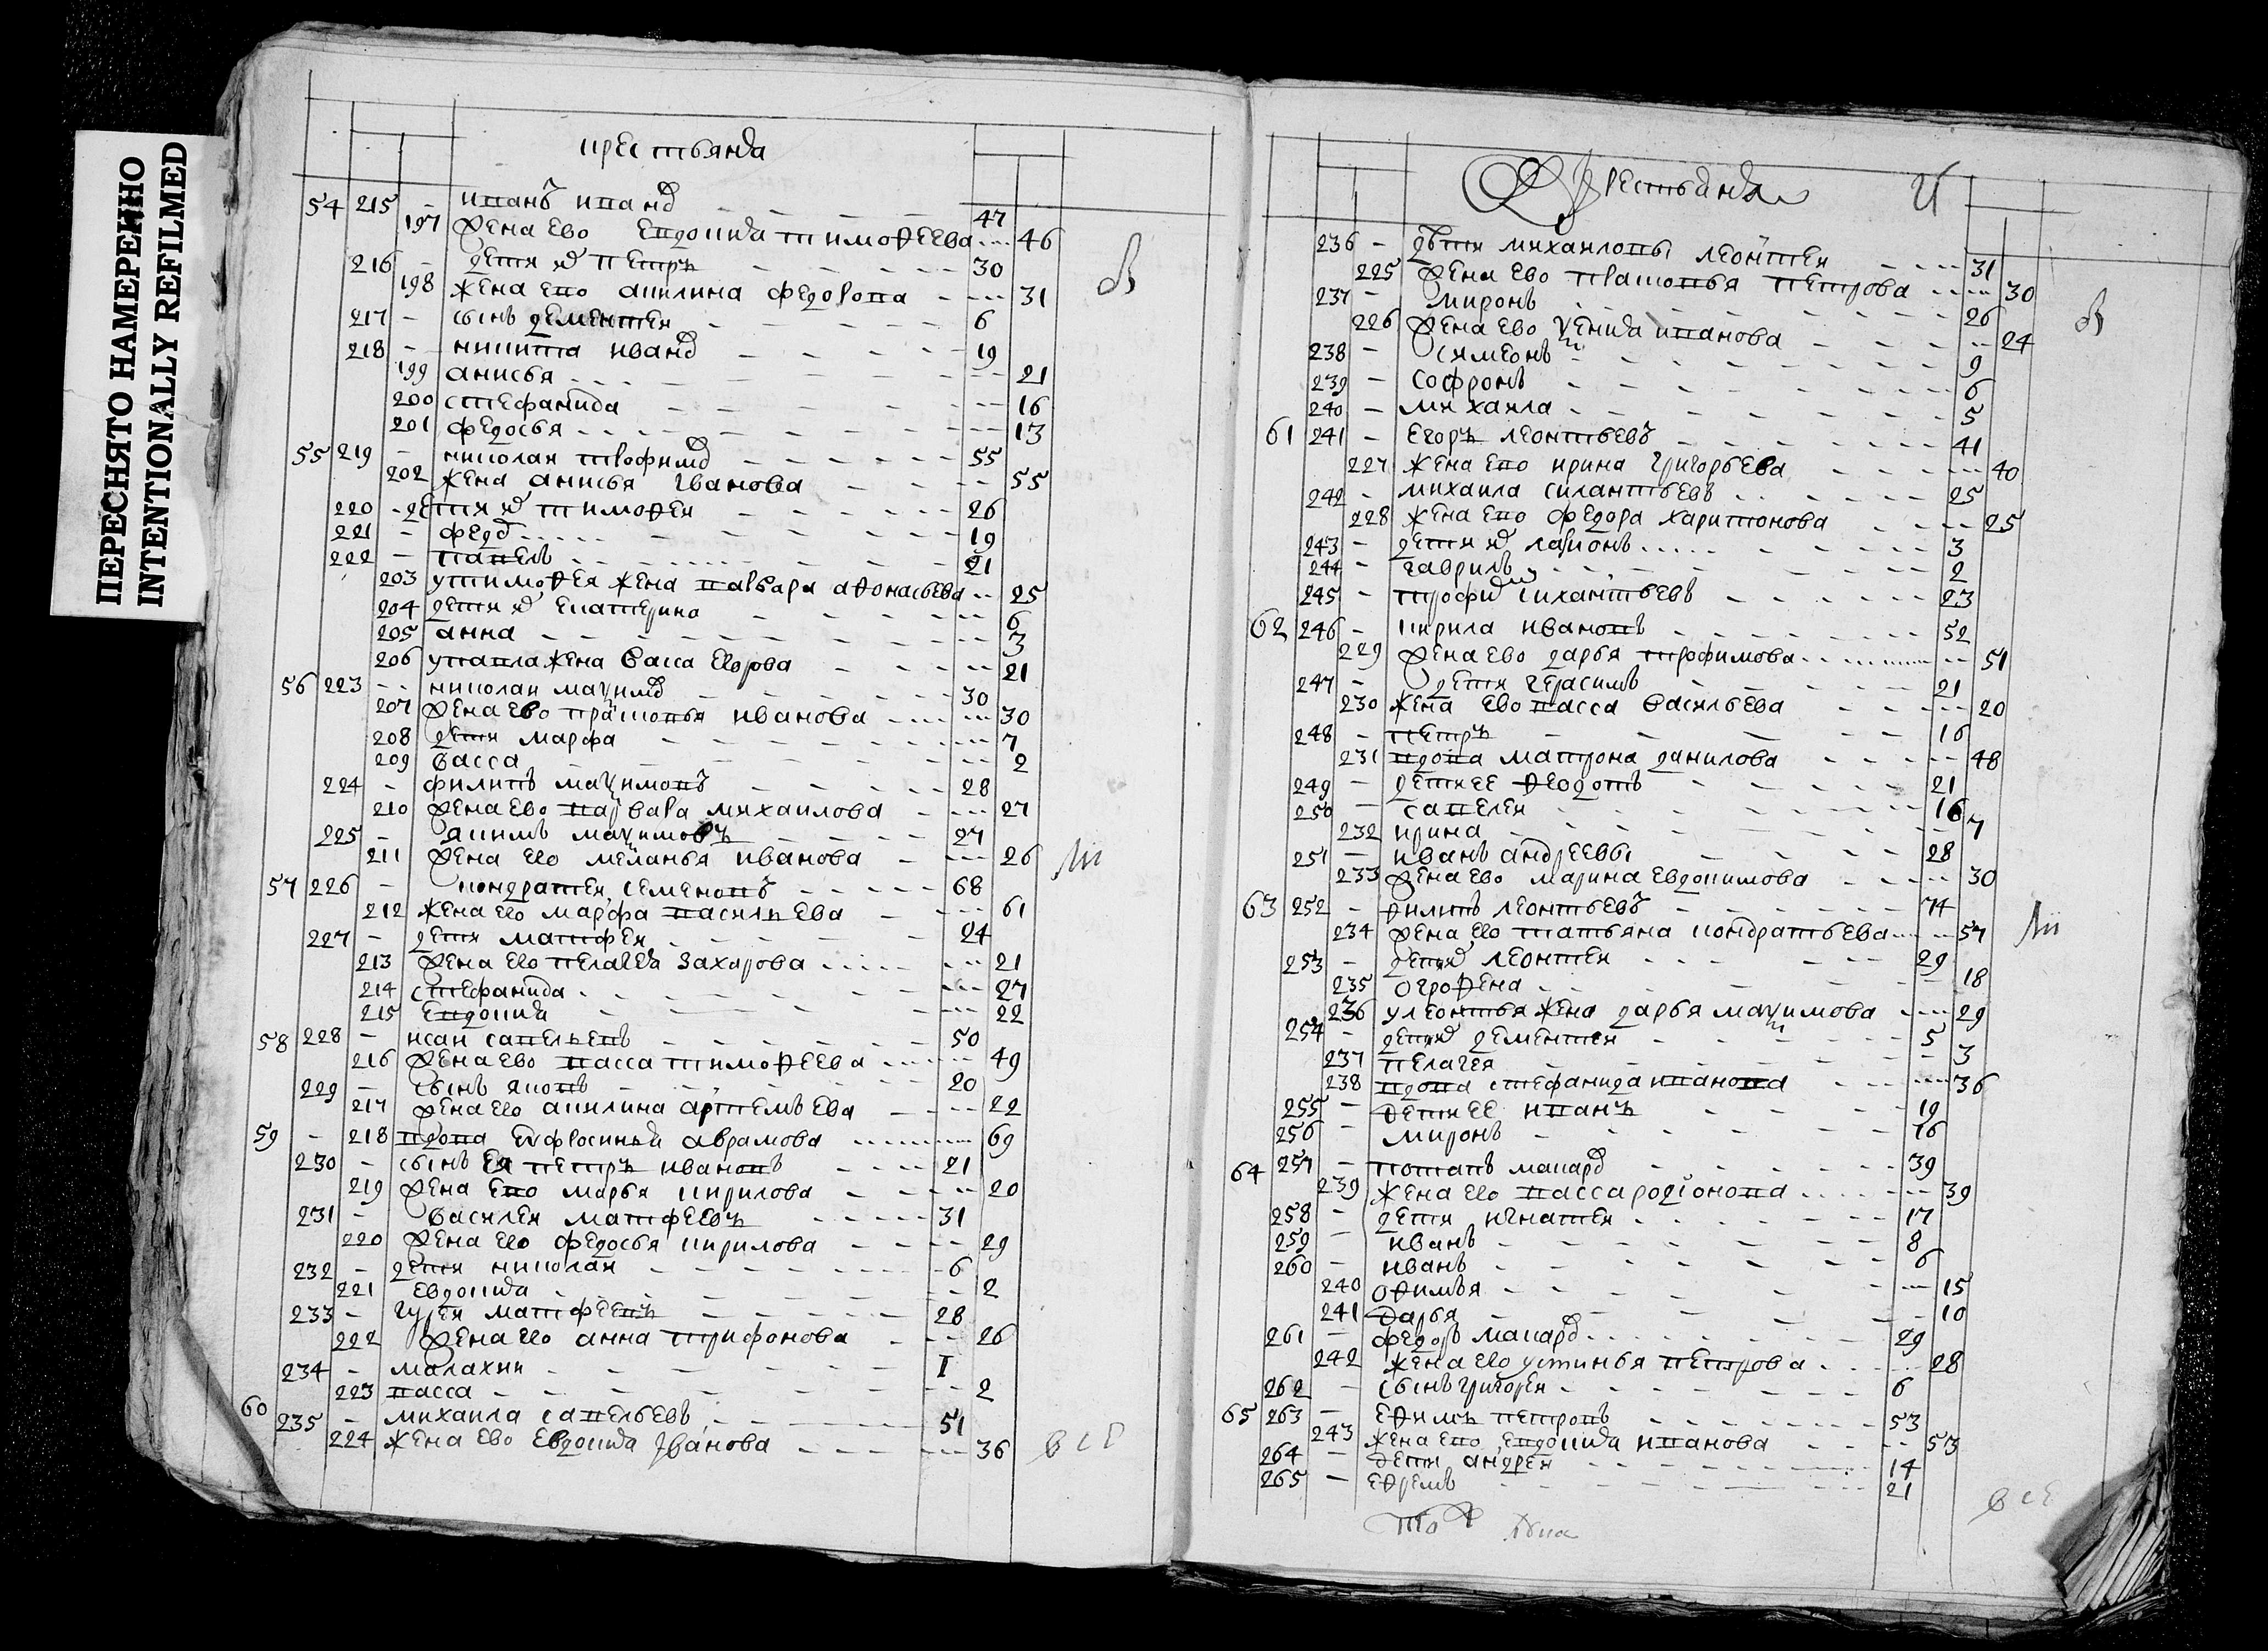 ПЕРЕСНЯТО НАМЕРЕННО
INTENTIONALLY REFILMED
крестьяня
54 215 - иванъ иванов - 47
197 жена ево евдокия тимофеева - 46
216 - дети их петръ - 30
198 жена ево акилина федорова - 31
217 - сынъ дементеи - 6
218 - никита иванов - 19
199 анисья - 21
200 стефанида - 16
201 федосья - 13
55 219 - николаи трофимов - 55
202 жена анисья иванова - 55
220 - дети их тимофеи - 26
221 - федор - 19
222 - павелъ - 21
203 у тимофея жена варвара афонасьева - 25
204 дети их екатерина - 6
205 анна - 3
206 у павла жена васса егорова - 21
56 223 - николаи макимов - 30
207 жена ево прасковья иванова - 30
208 дети марфа - 7
209 васса - 2
224 - филипъ макимовъ - 28
210 жена ево варвара михаилова - 27
225 - якимъ макимовъ - 27
211 жена его меланья иванова - 26
57 226 - кондратеи семеновъ - 68
212 жена его марфа васильева - 61
227 - дети матфеи - 24
213 жена его пелагея захарова - 21
214 стефанида - 27
215 евдокия - 22
58 228 - исаи савельевъ - 50
216 жена ево васса тимофеева - 49
229 - сынъ яковъ - 20
217 жена его акилина артемьева - 22
59 - 218 вдова евфросинья аврамова - 69
230 - сынъ ея петръ ивановъ - 21
219 жена ево марья кирилова - 20
231 - василеи матфеевъ - 31
220 жена его федосья кирилова - 29
232 - дети николаи - 6
221 евдокия - 2
233 - гуреи матфеевъ - 28
222 жена его анна трифонова - 26
234 - малахии - 1
223 васса - 2
60 235 - михаила савельевъ - 51
224 жена ево евдокия иванова - 36
все
Крестьяня
236 - дѣти михаиловы леонтеи - 31
225 жена ево прасковья петрова - 30
237 - миронъ - 26
226 жена ево ксения иванова - 24
238 - симеонъ - 9
239 - софронъ - 6
240 - михаила - 5
61 241 - егоръ леонтьевъ - 41
227 жена ево ирина григорьева - 40
242 - михаила силантьевъ - 25
228 жена ево федора харитонова - 25
243 - дети их ларионъ - 3
244 - гаврилъ - 2
245 - трофим силантьевъ - 23
62 246 - кирила ивановъ - 52
229 жена ево дарья трофимова - 51
247 - дети герасимъ - 21
230 жена ево васса васильева - 20
248 - петръ - 16
231 вдова матрона данилова - 48
249 - дети ее феодотъ - 21
250 - савелеи - 16
232 ирина - 7
251 - иванъ андреевъ - 28
233 жена ево марина евдокимова - 30
63 252 - филипъ леонтьевъ - 74
234 жена его татьяна кондратьева - 57
253 - дети их леонтеи - 29
235 огрофена - 18
236 у леонтья жена дарья макимова - 29
254 - дети их дементеи - 5
237 пелагея - 3
238 вдова стефанида иванова - 36
255 - дети ее иванъ - 19
256 - миронъ - 16
64 257 - потапъ макаров - 39
239 жена его васса родионова - 39
258 - дети игнатеи - 17
259 - иванъ - 8
260 - иванъ - 6
240 офимья - 15
241 дарья - 10
261 - федоръ макаров - 29
242 жена его устинья петрова - 28
262 - сынъ григореи - 6
65 263 - ефимъ петровъ - 53
243 жена ево евдокия иванова - 53
264 - дети андреи - 14
265 - ефремъ - 21
все